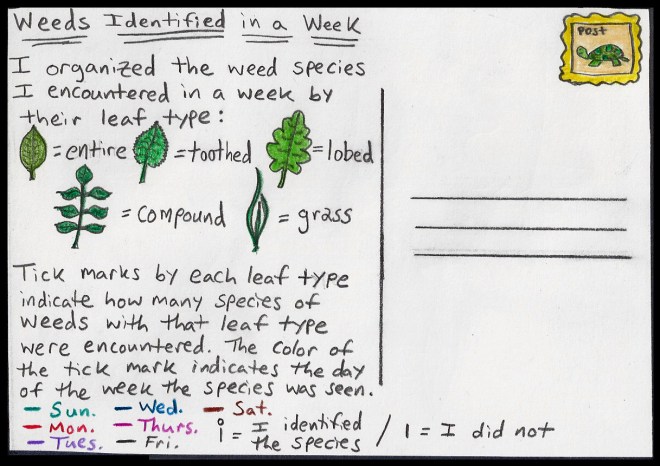 Weeds Identified in a Week
POST
I organized the weed species
I encountered in a week by
their leaf type:
= entire = toothed = lobed
= compound = grass
Tick marks by each leaf type
indicate how many species of
weeds with that leaf type
were encountered. The color of
the tick mark indicates the day
of the week the species was seen.
Sun. Wed. Sat.
Mon. Thurs.
Tues. Fri.
= I identified the species / | = I did not